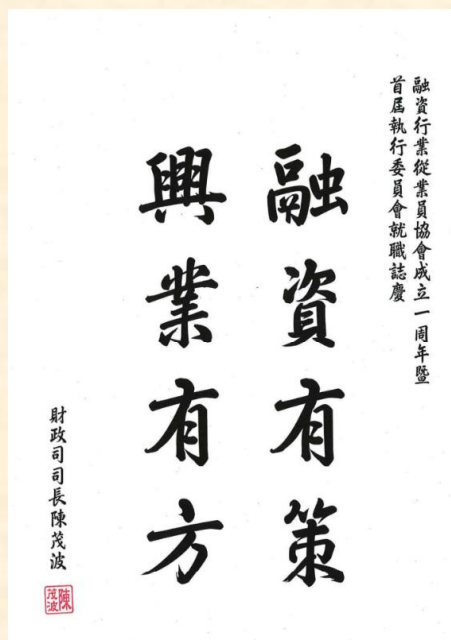 融資行業從業員協會成立一周年暨
首屆執行委員會就職誌慶
融資有策
興業有方
財政司司長陳茂波
陳茂波